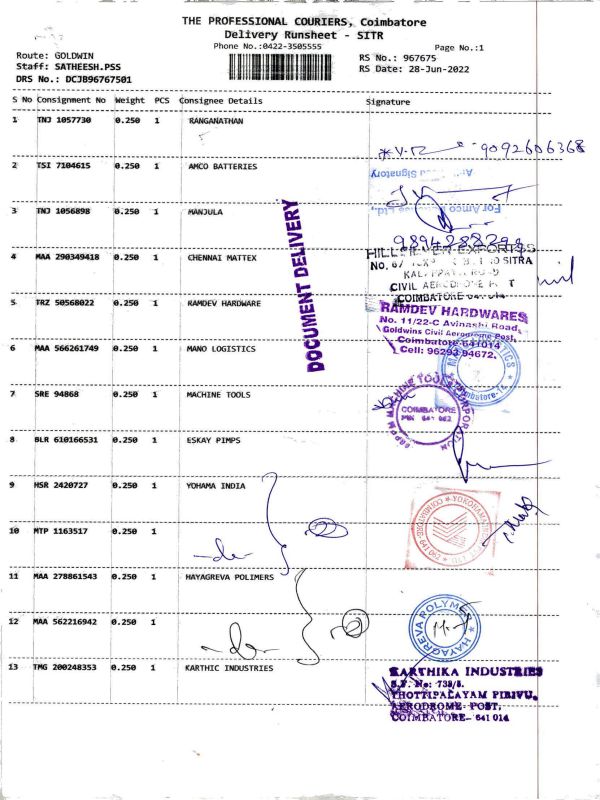 THE PROFESSIONAL COURIERS, Coimbatore
Delivery Runsheet - SITR
Phone No.:0422-3505555
Page No.:1
Route: GOLDWIN
RS No.: 967675
Staff: SATHEESH.PSS
RS Date: 28-Jun-2022
DRS No.: DCJB96767501
S No Consignment No Weight PCS Consignee Details Signature
1 TNJ 1057730 0.250 1 RANGANATHAN
9092606368
2 TSI 7104615 0.250 1 AMCO BATTERIES
Signatory
For Amco Ltd.,
3 TNJ 1056898 0.250 1 MANJULA
DOCUMENT DELIVERY
4 MAA 290349418 0.250 1 CHENNAI MATTEX
No. 67 SITRA
CIVIL AERODROME
COIMBATORE
5 TRZ 50568022 0.250 1 RAMDEV HARDWARE
RAMDEV HARDWARES
No. 11/22-C Avinashi Road,
Goldwins Civil Aerodrome Post,
Coimbatore-641014
Cell: 96293 94672.
6 MAA 566261749 0.250 1 MANO LOGISTICS
7 SRE 94868 0.250 1 MACHINE TOOLS
MACHINE TOOLS CORPORATION
COIMBATORE
8 BLR 610166531 0.250 1 ESKAY PIMPS
9 HSR 2420727 0.250 1 YOHAMA INDIA
10 MTP 1163517 0.250 1
-do-
11 MAA 278861543 0.250 1 HAYAGREVA POLIMERS
12 MAA 562216942 0.250 1
-do-
HAYAGREVA POLYMERS
13 TMG 200248353 0.250 1 KARTHIC INDUSTRIES
KARTHIKA INDUSTRIES
S.F. No: 738/5.
THOTTIPALAYAM PIRIVU,
AERODROME POST,
COIMBATORE- 641 014